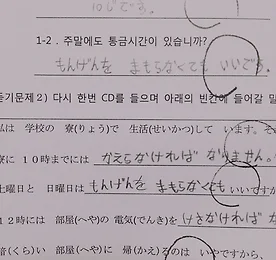 1-2. 주말에도 통금시간이 있습니까?
もんげんを まもらなくても いいです。
듣기문제2) 다시 한번 CD를 들으며 아래의 빈칸에 들어갈 말
私は 学校の 寮(りょう)で 生活(せいかつ)して います。そ
寮に 10時までには かえらなければ なりません。
土曜日と 日曜日は もんげんを まもらなくても いいですが
12時には 部屋(へや)の 電気(でんき)を けさなければ な
暗(くら)い 部屋(へや)に 帰(かえ)るのは いやですから、